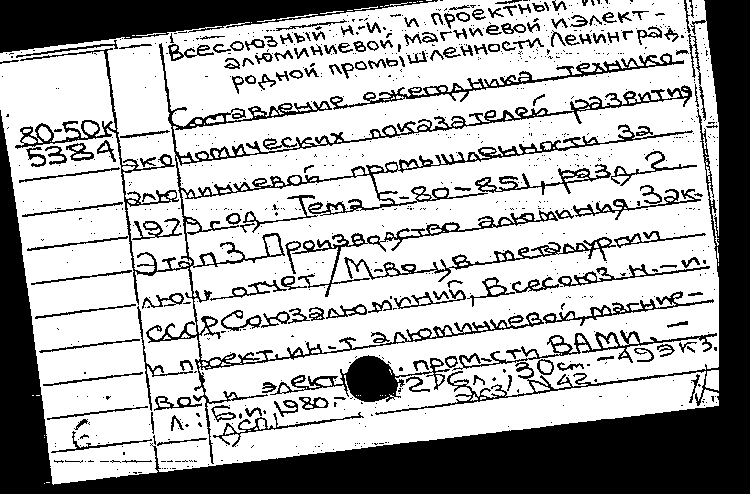 Всесоюзный н.-и. и проектный ин
алюминиевой, магниевой и элект-
родной промышленности, Ленинград.
80-50к
5384
Составление ежегодника технико-
экономических показателей развития
алюминиевой промышленности за
1979 год : Тема 5-80-851, разд. 2.
Этап 3. Производство алюминия. Зак-
люч. отчет / М-во цв. металлургии
СССР, Союзалюминий, Всесоюз. н.-и.
и проект. ин-т алюминиевой, магние-
вой и элект . пром-сти ВАМИ. –
Л. : Б.и., 1980.- ; 30 см. – 49экз.
ДСП. Экз. N 42.